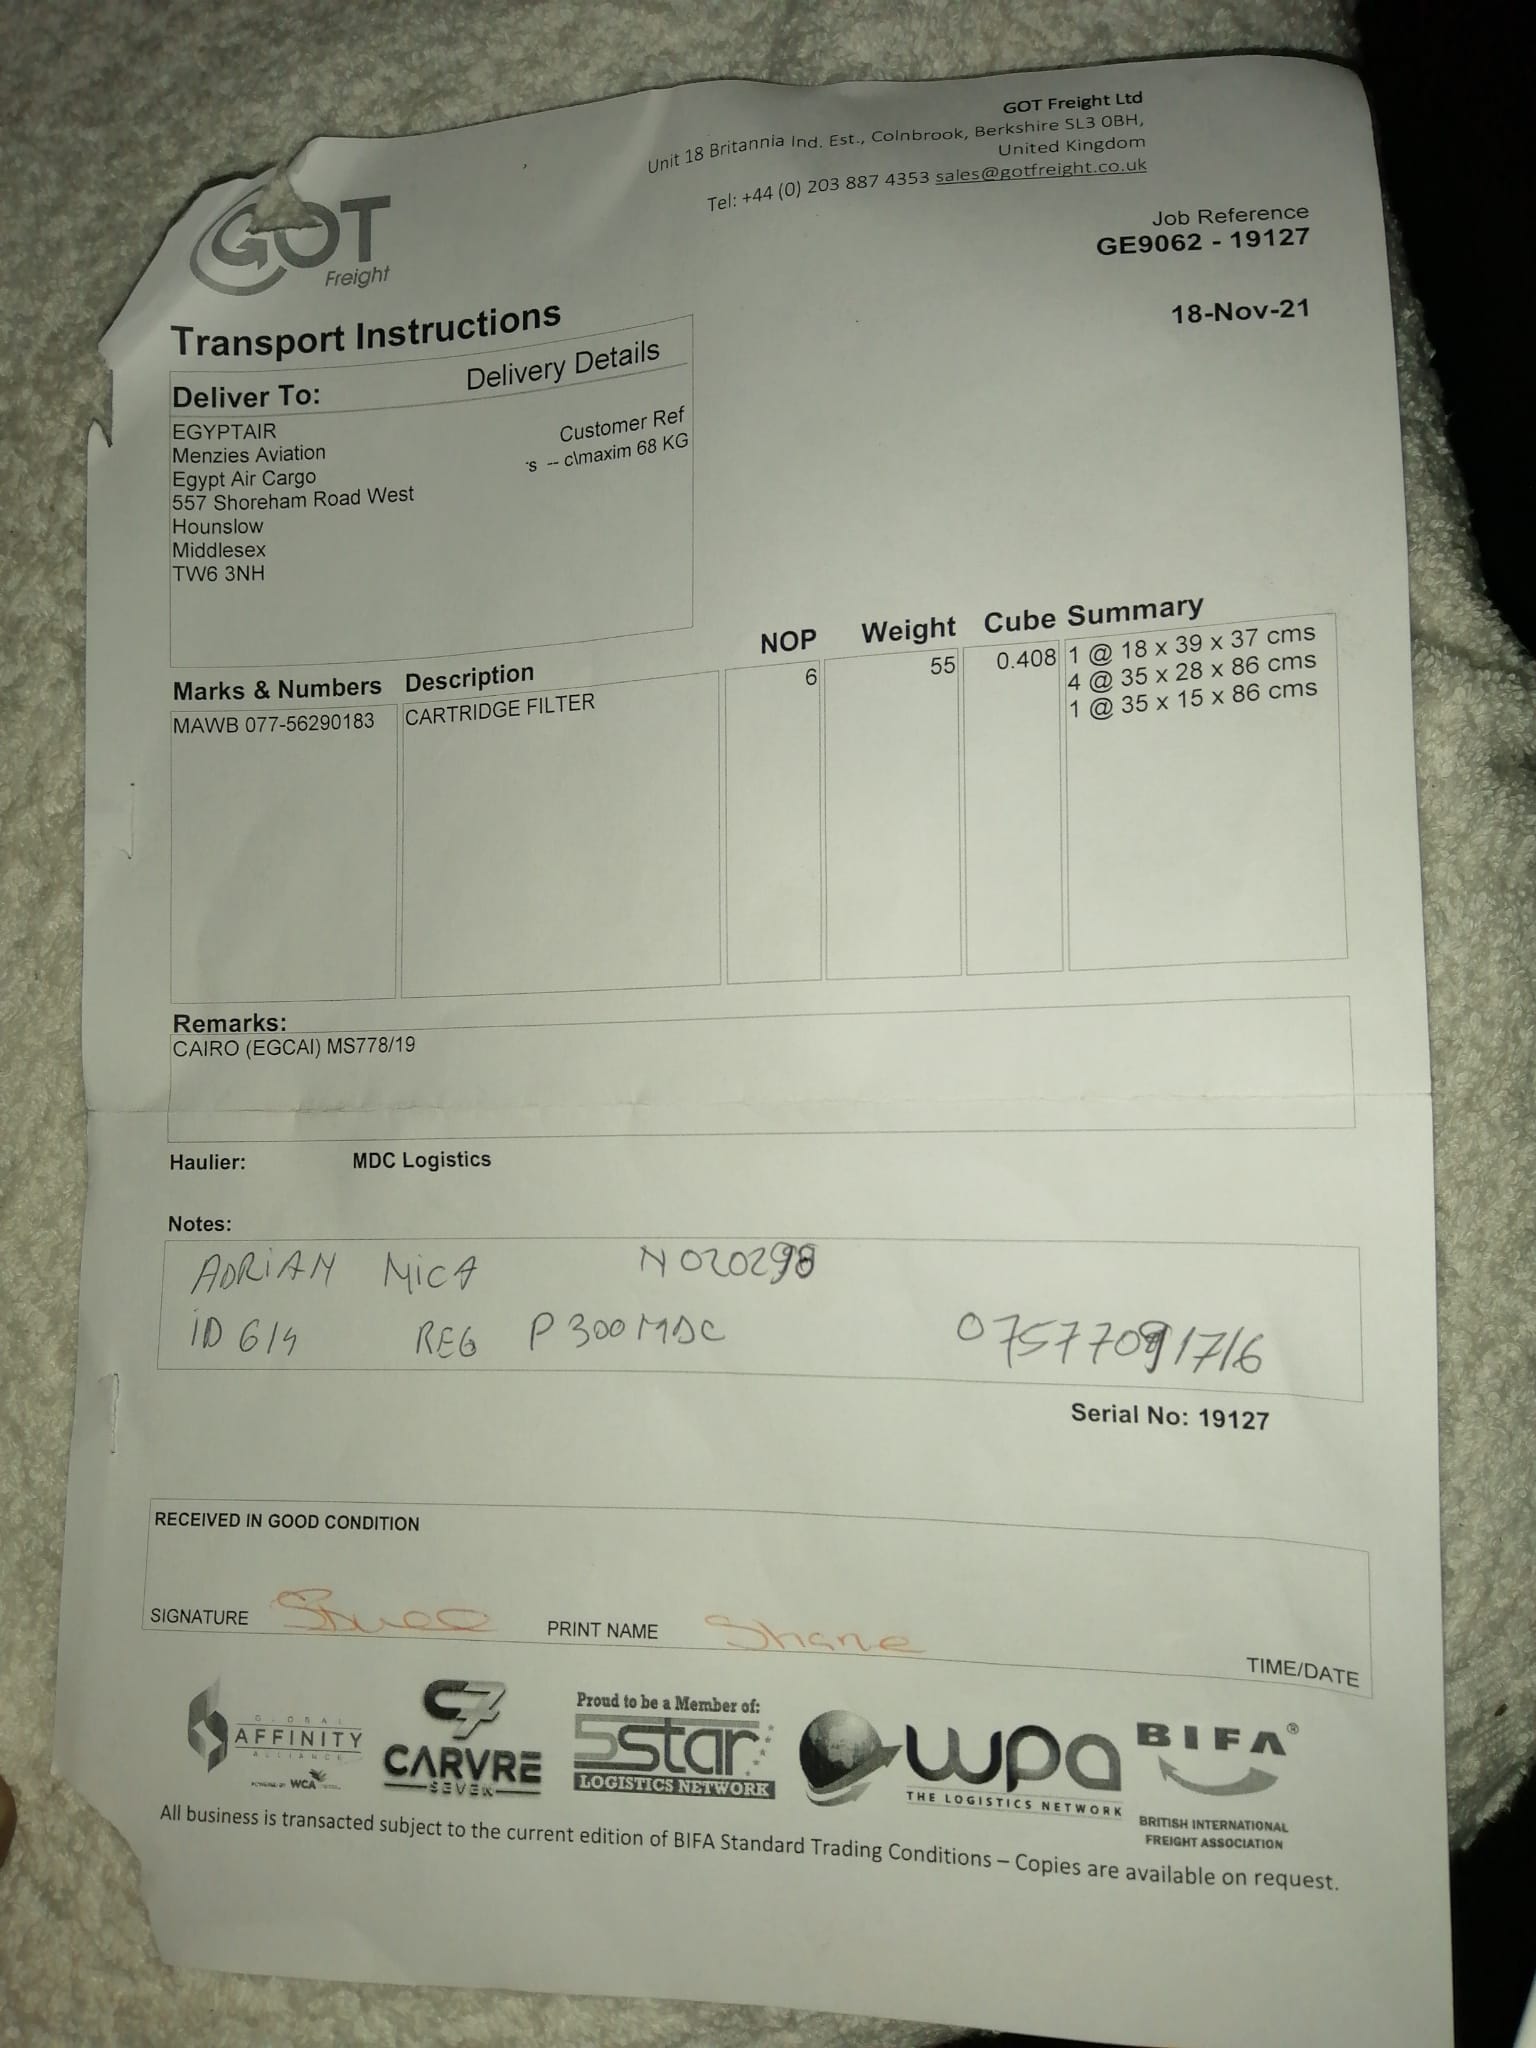 GOT Freight Ltd
Unit 18 Britannia Ind. Est., Colnbrook, Berkshire SL3 0BH,
United Kingdom
Tel: +44 (0) 203 887 4353 sales@gotfreight.co.uk
GOT
Freight
Job Reference
GE9062 - 19127
18-Nov-21
Transport Instructions
Deliver To: Delivery Details
EGYPTAIR
Menzies Aviation
Egypt Air Cargo
557 Shoreham Road West
Hounslow
Middlesex
TW6 3NH
Customer Ref
's -- c\maxim 68 KG
Marks & Numbers Description NOP Weight Cube Summary
MAWB 077-56290183 CARTRIDGE FILTER 6 55 0.408 1 @ 18 x 39 x 37 cms
4 @ 35 x 28 x 86 cms
1 @ 35 x 15 x 86 cms
Remarks:
CAIRO (EGCAI) MS778/19
Haulier: MDC Logistics
Notes:
ADRIAN MICA N020298
ID 614 REG P300MDC 07577091716
Serial No: 19127
RECEIVED IN GOOD CONDITION
SIGNATURE PRINT NAME Shane
TIME/DATE
GLOBAL
AFFINITY
ALLIANCE
POWERED BY WCA
C7
CARVRE
SEVEN
Proud to be a Member of:
5star
LOGISTICS NETWORK
wpa
THE LOGISTICS NETWORK
BIFA®
BRITISH INTERNATIONAL
FREIGHT ASSOCIATION
All business is transacted subject to the current edition of BIFA Standard Trading Conditions – Copies are available on request.